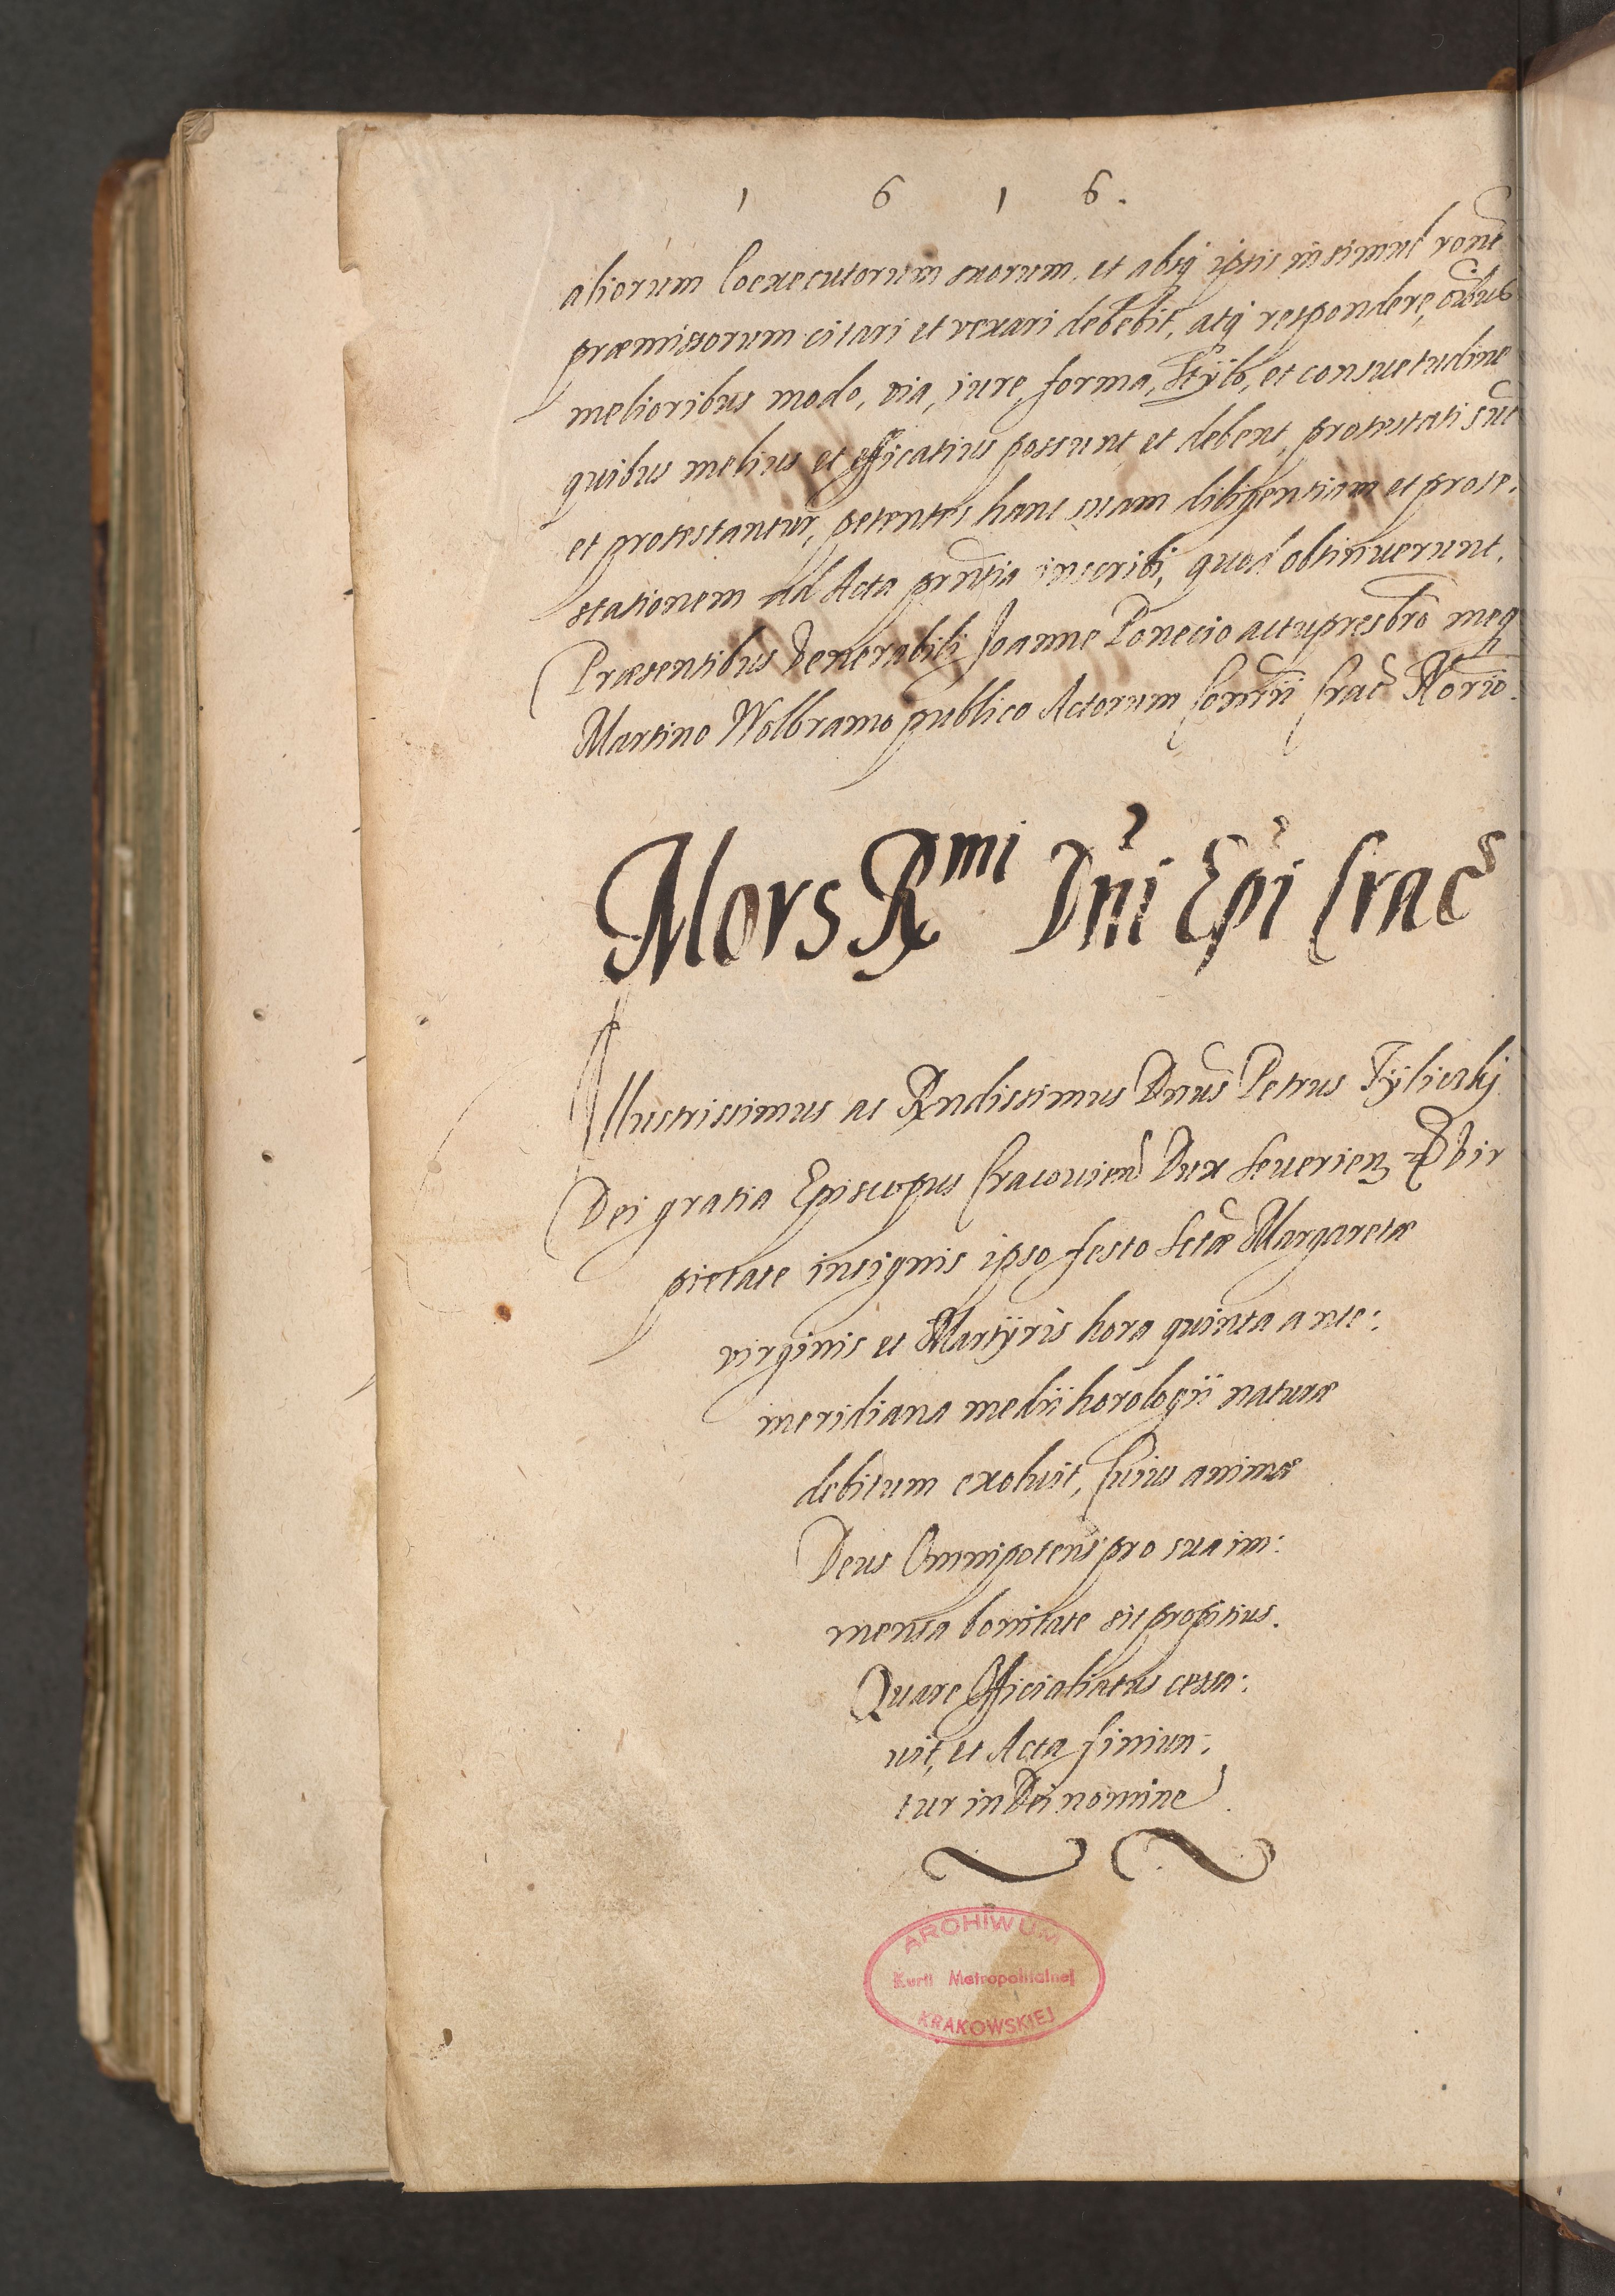 1 6 1 6.
aliorum Coexecutorum suorum, et absq ipsis insimul rone
præmissorum citari et vexari debebit, atq respondere, oibus
melioribus modo, via, iure, forma, stÿlo, et consuetudine
quibus melius et efficatius possunt et debent, protestati sut
et protestantur, petentes hanc suam diligentiam et prote-
stationem ad Acta prntia inscribi, quod obtinuerunt.
Præsentibus Venerabili Joanne Ponecio actu presbro meq
Martino Wolbramo publico Actorum Consrii Crac Norio.
Mors Rmi Dni Epi Crac
Illustrissimus ac Rndissimus Dnus Petrus Tÿlickj
Dei gratia Episcopus Cracovien Dux Severien Vir
pietate insignis ipso festo Sctæ Margaretæ
virginis et Martÿris hora quinta ante:
meridiana medii horologii naturæ
debitum exoluit, Cuius animæ
Deus Omnipotens pro sua im:
mensa bonitate sit propitius.
Quare Officialatus cessa:
uit, et Acta finiun:
tur in Dei nomine
ARCHIWUM
Kurii Metropolitalnej
KRAKOWSKIEJ